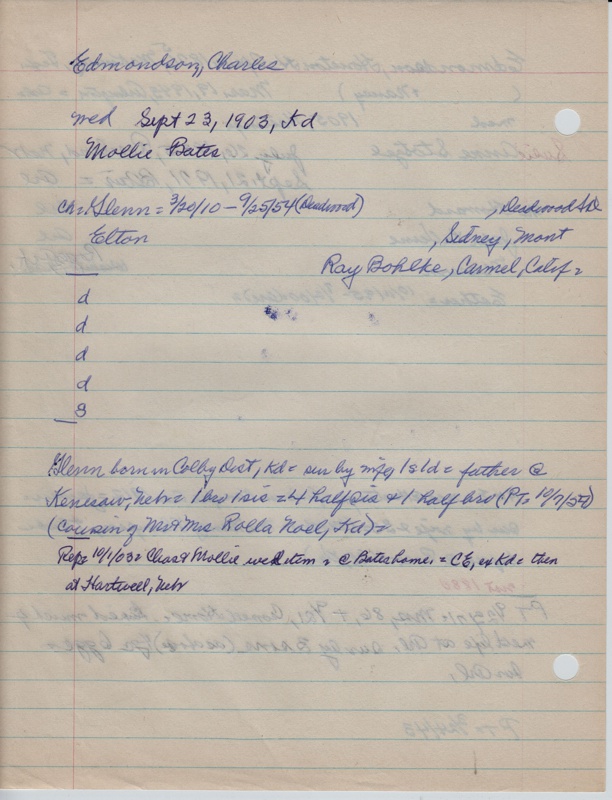 Edmondson, Charles
wed Sept 23, 1903, Kd
Mollie Bates,
ch = Glenn = 3/20/10 - 9/25/54 (Deadwood) , Deadwood SD
Elton , Sidney, Mont
Ray Bohlke, Carmel, Calif =
d
d
d
d
s
Glenn born in Colby Dist, Kd = sur by m 1s 1d = father @
Kenesaw, Nebr = 1 bro 1 sis = 4 half sis & 1 half bro (PT = 10/7/54)
(cousin of Mr & Mrs Rolla Noel, Kd) =
Rep = 10/1/03 = Chas & Mollie wed item = @ Bates home = CE, ex Kd = then
at Hartwell, Nebr